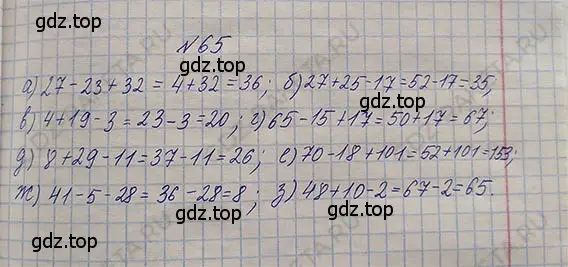 gdz.top
№65
gdz.top
а) 27-23+32=4+32=36; б) 27+25-17=52-17=35;
gdz.top
в) 4+19-3=23-3=20; г) 65-15+17=50+17=67;
д) 8+29-11=37-11=26; е) 70-18+101=52+101=153;
gdz.top
ж) 41-5-28=36-28=8; з) 48+10-2=67-2=65.
gdz.top
gdz.top